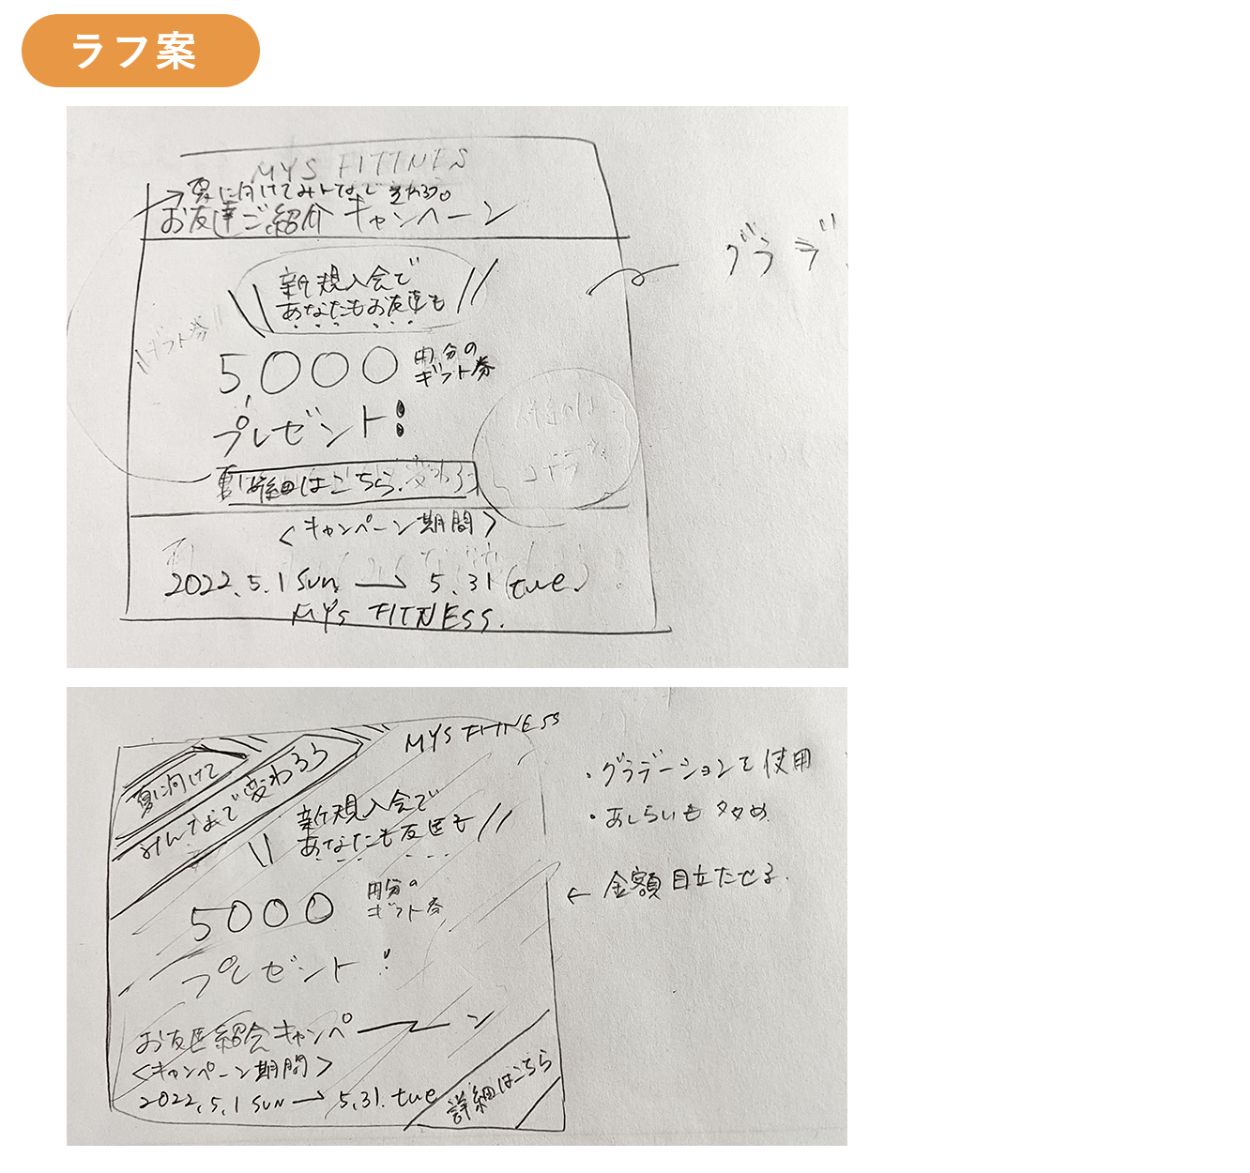 ラフ案
MYS FITTNES
夏に向けてみんなで変わろう。
お友達ご紹介キャンペーン
グラデ
新規入会で
あなたもお友達も
ギフト券
5,000 円分の
ギフト券
プレゼント!
詳細はこちら. 変わろう
<キャンペーン期間>
2022.5.1 sun → 5.31 (tue.)
MYS FITNESS.
MYS FITNESS
夏に向けて
みんなで変わろう
新規入会で
あなたも友達も
5000 円分の
ギフト券
プレゼント!
お友達紹介キャンペーン
<キャンペーン期間>
2022.5.1 SUN → 5.31. tue
詳細はこちら
・グラデーションを使用
・あしらいも多め
← 金額目立たせる.